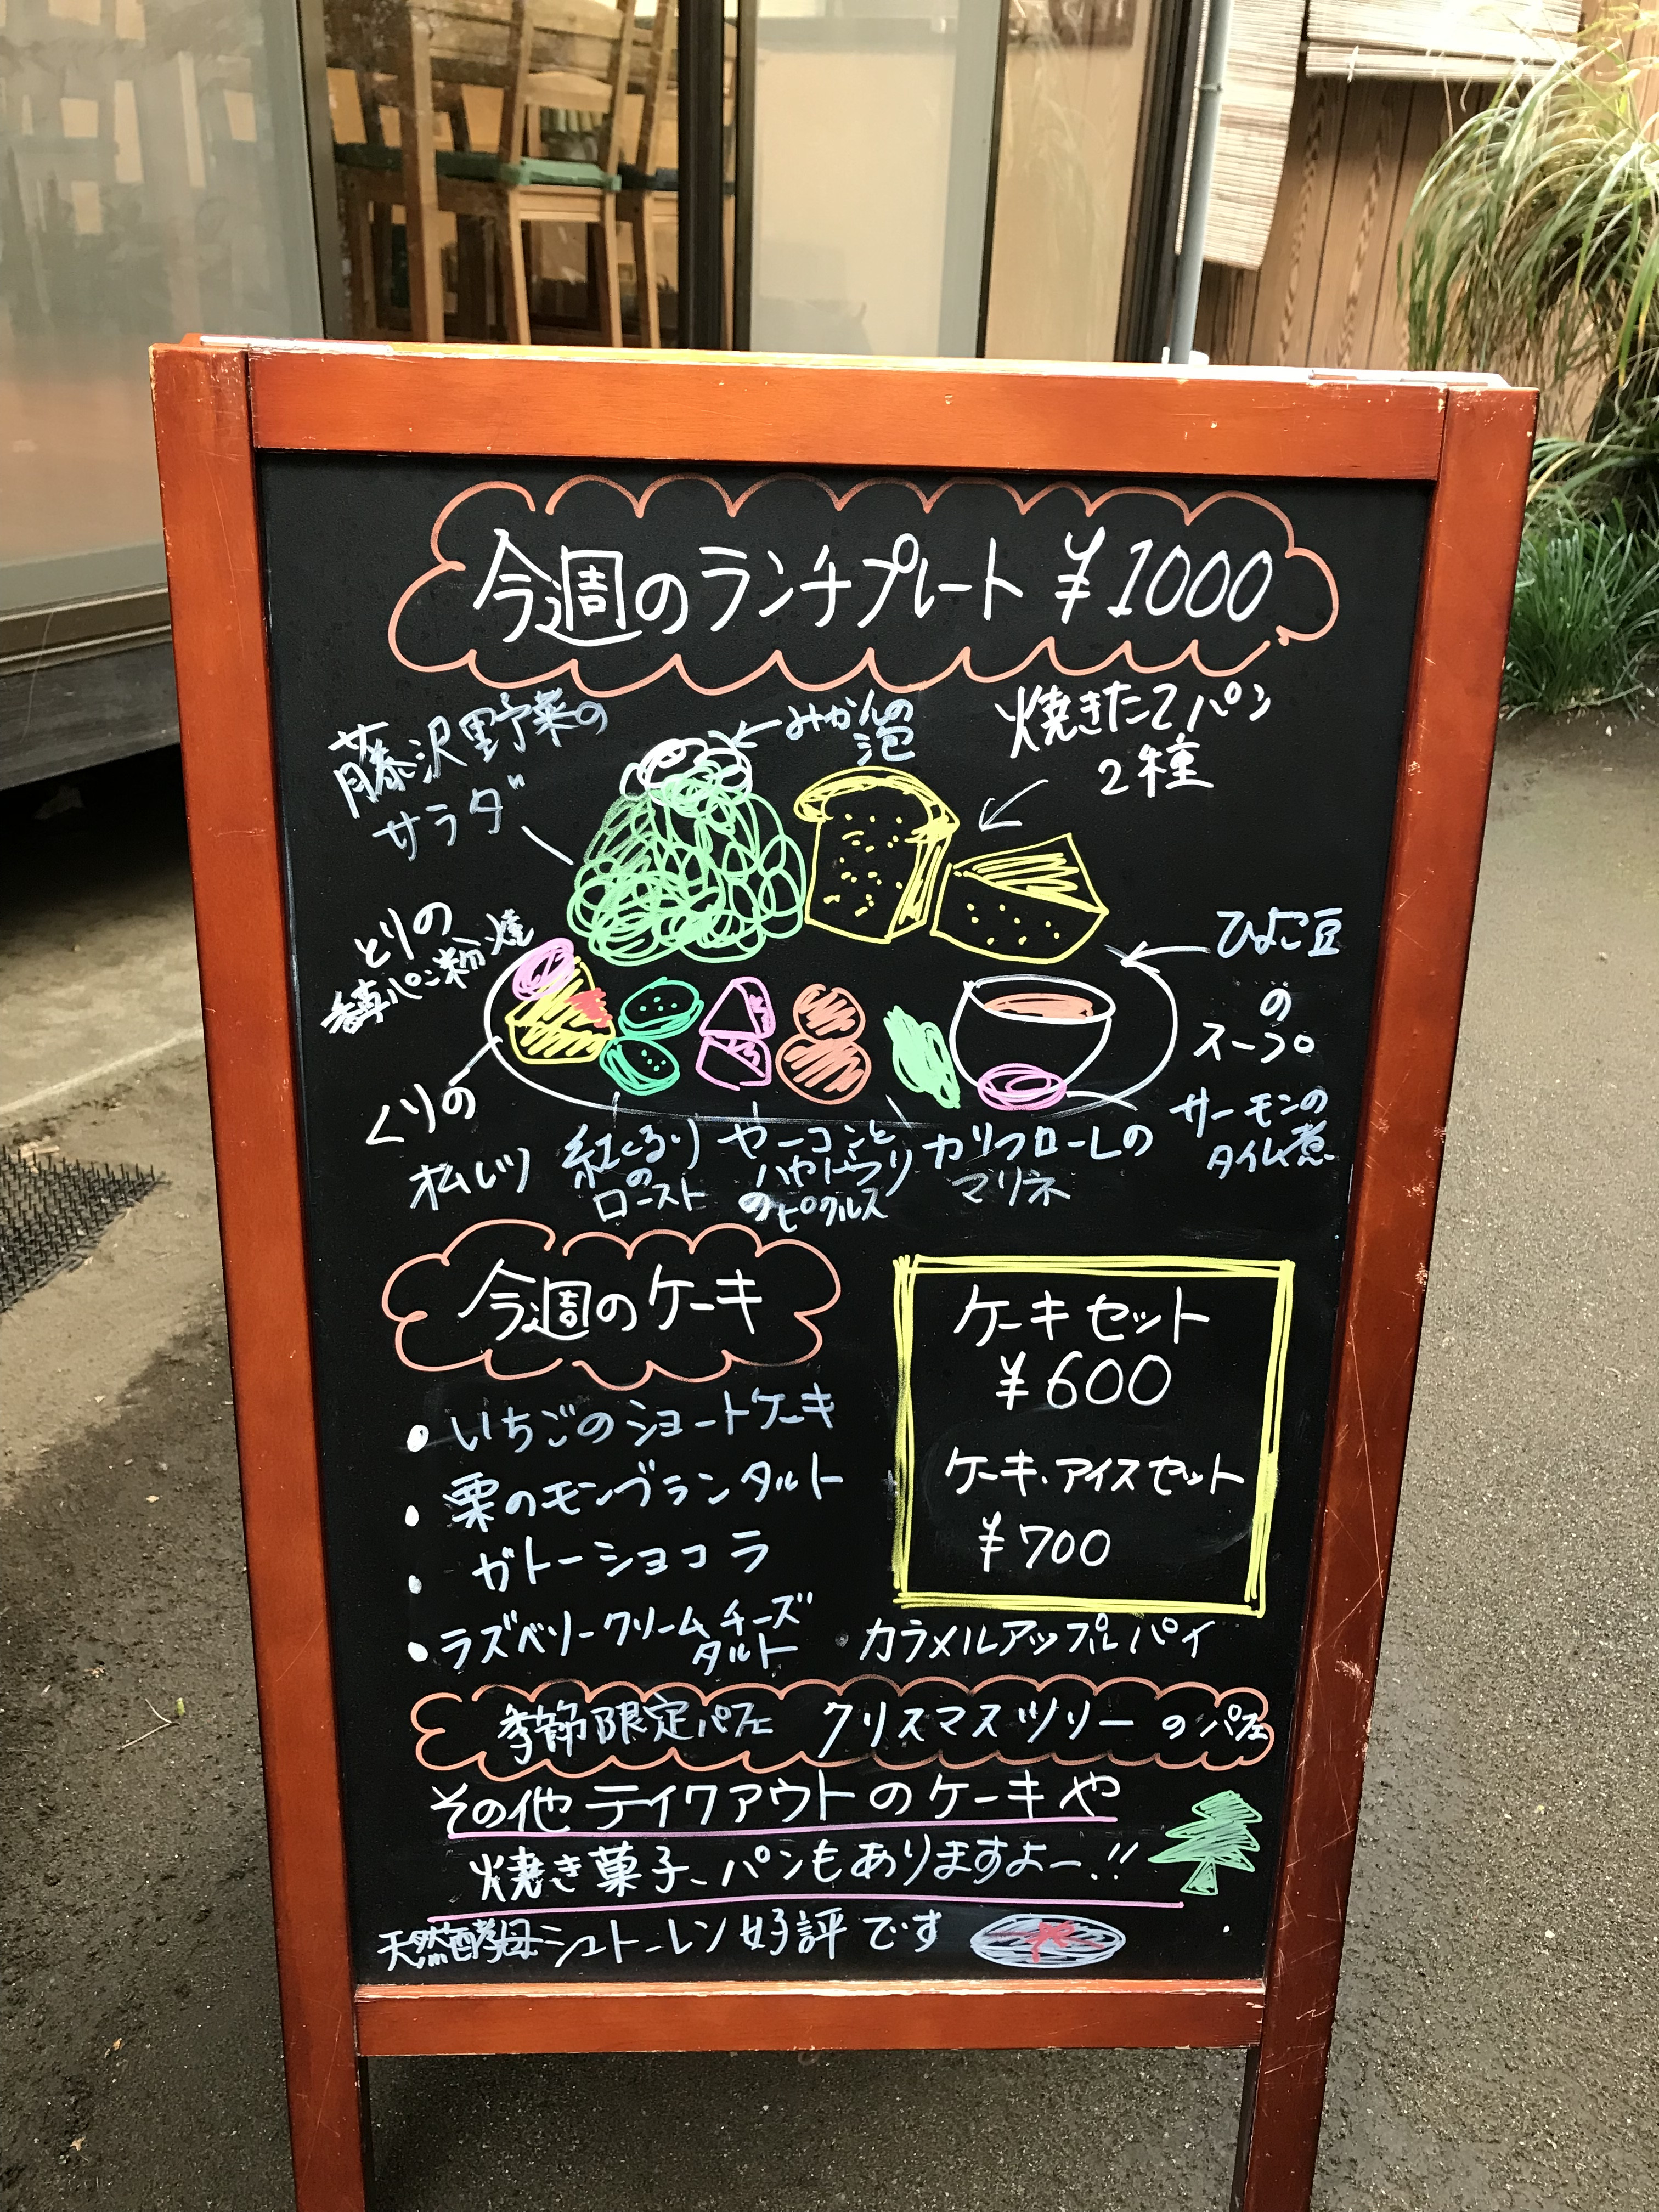 今週のランチプレート ¥1000
藤沢野菜の
サラダ
みかんの
泡
焼きたてパン
2種
とりの
香草パン粉焼
ひよこ豆
の
スープ
くりの
オムレツ
紅くるり
の
ロースト
ヤーコンと
ハヤトウリ
のピクルス
カリフローレの
マリネ
サーモンの
タイム煮
今週のケーキ
・いちごのショートケーキ
・栗のモンブランタルト
・ガトーショコラ
・ラズベリークリームチーズ
タルト
・カラメルアップルパイ
ケーキセット
¥600
ケーキ・アイスセット
¥700
季節限定パフェ クリスマスツリーのパフェ
その他テイクアウトのケーキや
焼き菓子、パンもありますよー!!
天然酵母シュトーレン好評です